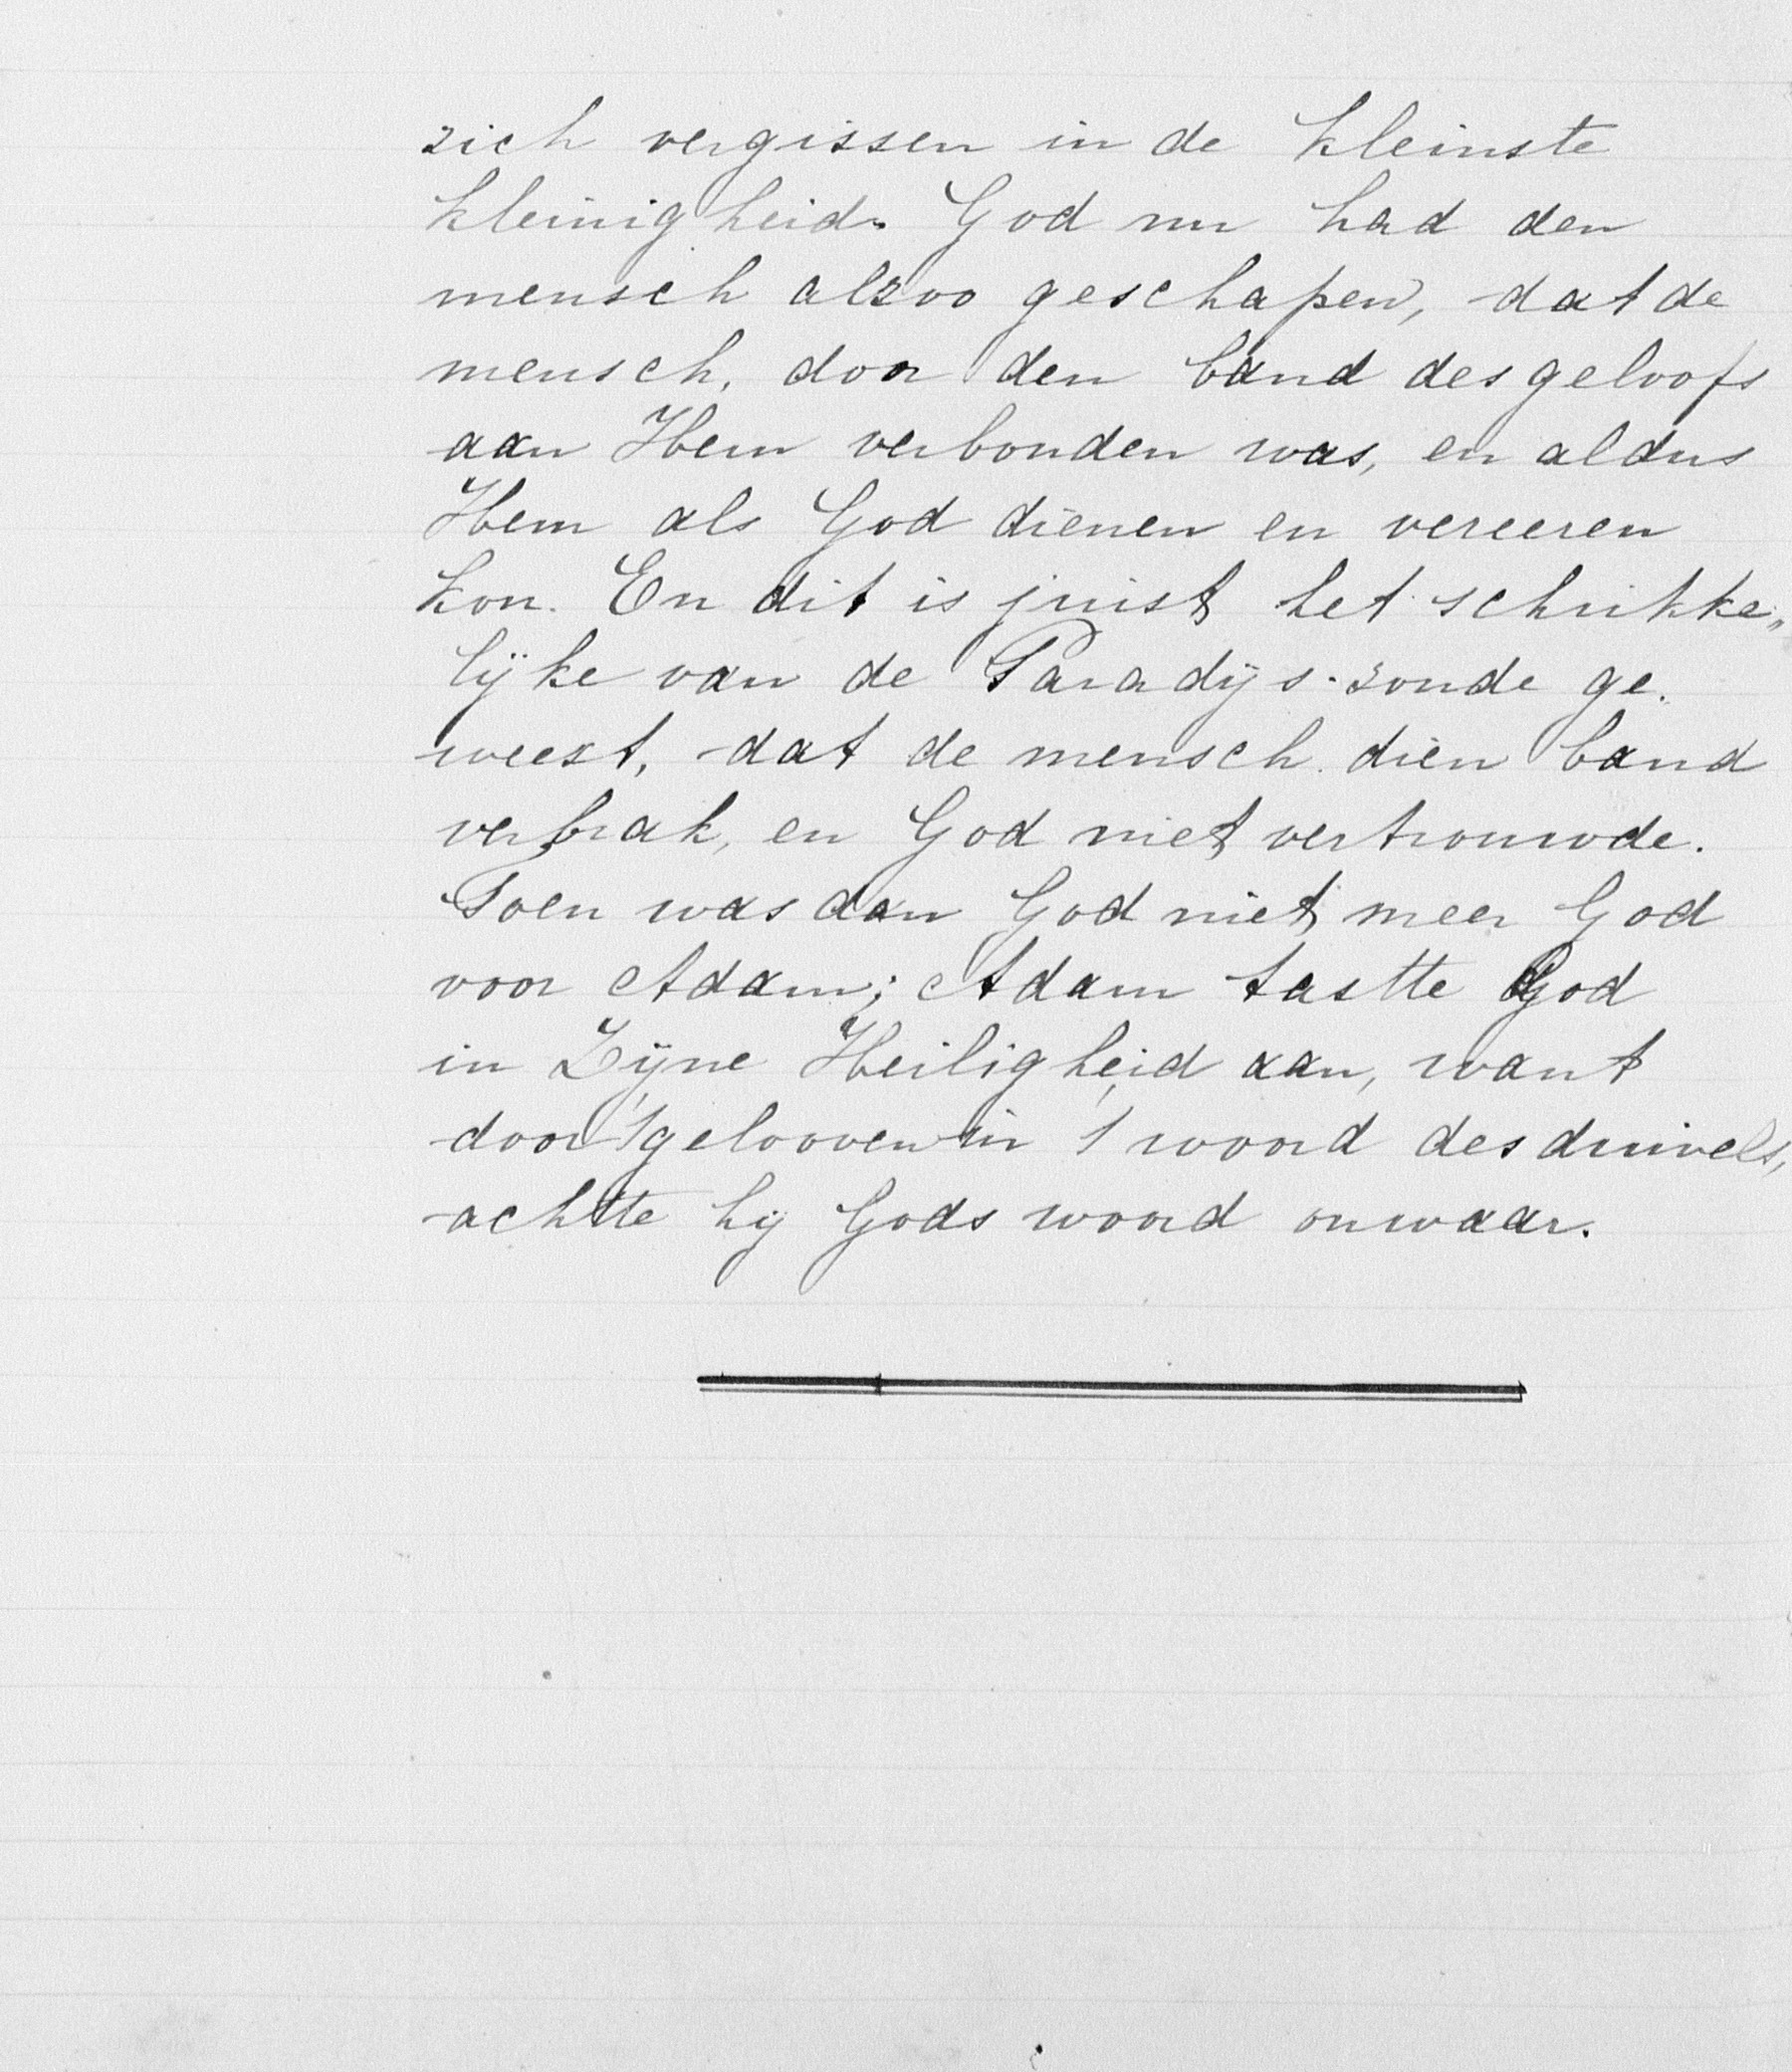 zich vergissen in de kleinste
kleinigheid. God nu had den
mensch alzoo geschapen, dat de
mensch, door den band des geloofs
aan Hem verbonden was, en aldus
Hem als God dienen en vereeren
kon. En dit is juist het schrikke„
lijke van de Paradijs-zonde ge„
weest, dat de mensch dien band
verbrak, en God niet vertrouwde.
Toen was dan God niet meer God
voor Adam; Adam tastte God
in Zijne Heiligheid aan, want
door 't gelooven in 't woord des duivels,
achtte hij Gods woord onwaar.